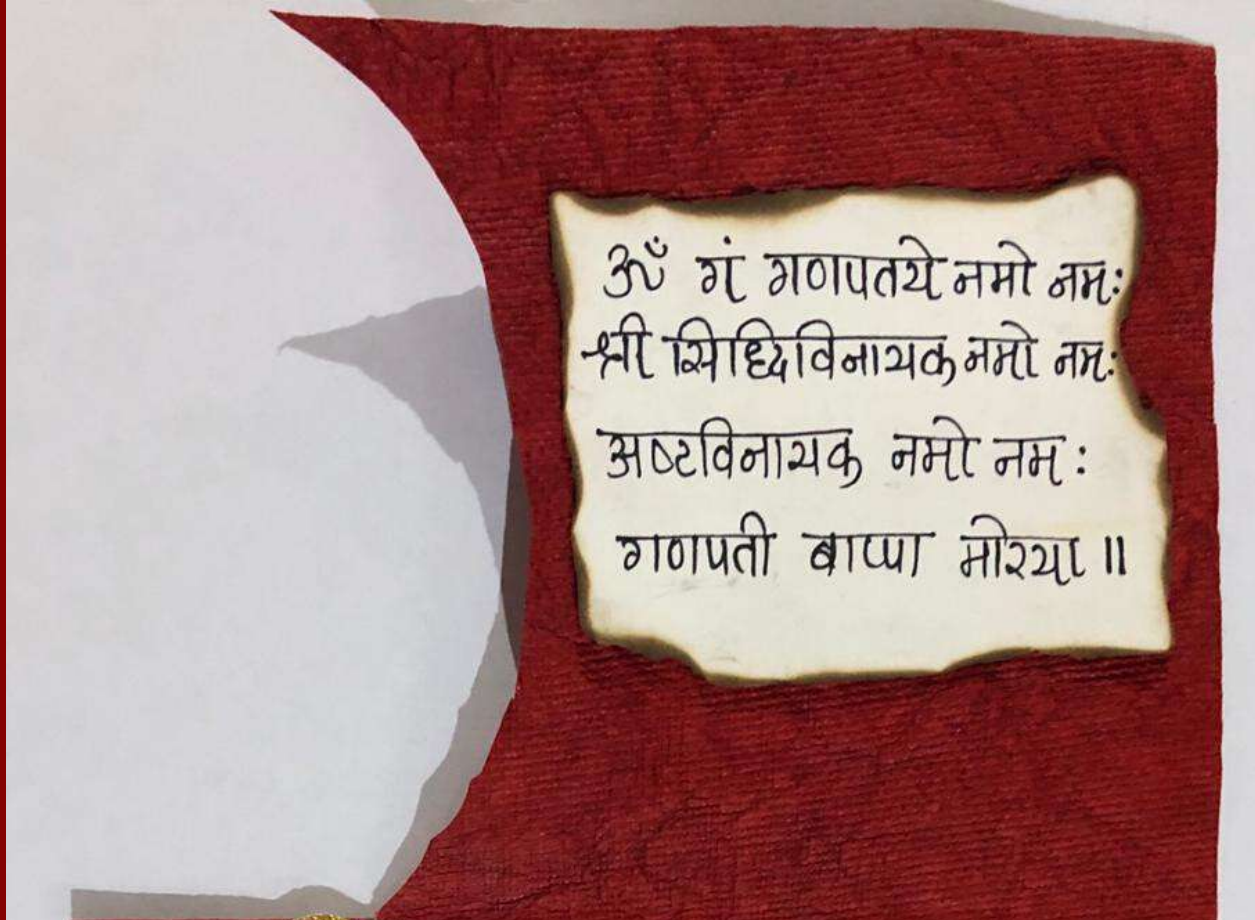 ॐ गं गणपतये नमो नमः
श्री सिध्दिविनायक नमो नमः
अष्टविनायक नमो नमः
गणपती बाप्पा मोरया ॥